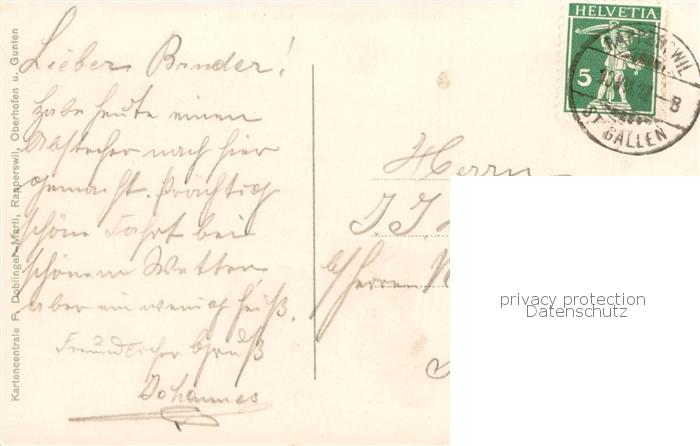 Kartencentrale F. Doblinger-Marti, Rapperswil, Oberhofen u. Gunten
Lieber Bruder!
Habe heute einen
Abstecher nach hier
gemacht. Prächtig
schöne Fahrt bei
schönem Wetter,
aber ein wenig heiß.
Freundlicher Gruß
Johannes
HELVETIA
5
ST. GALLEN
8
Herrn
J. J.
b/ Herrn
privacy protection
Datenschutz